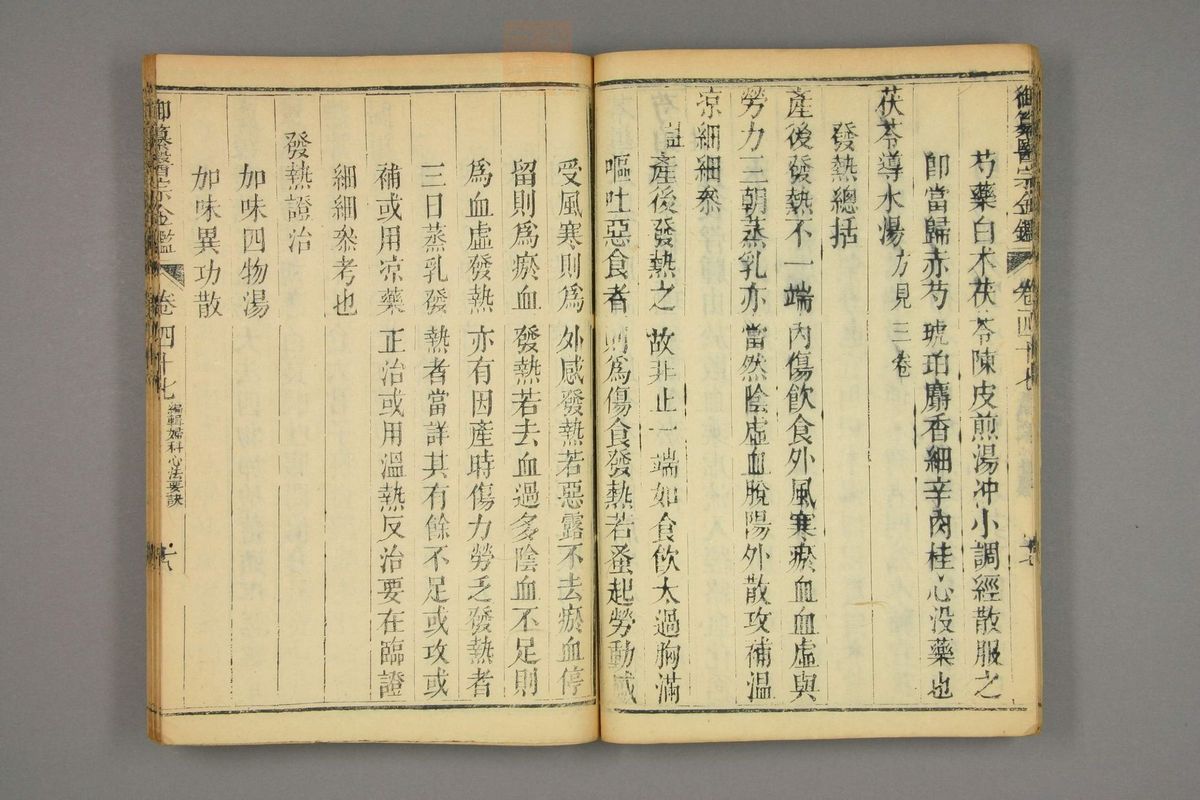 御纂醫宗金鑑 卷四十七
芍藥白朮茯苓陳皮煎湯冲小調經散服之
卽當歸赤芍琥珀麝香細辛肉桂心没藥也
茯苓導水湯方見三卷
發熱總括
產後發熱不一端內傷飲食外風寒瘀血血虛與
勞力三朝蒸乳亦當然陰虛血脫陽外散攻補溫
凉細細叅
註產後發熱之故非止一端如食飲太過胸滿
嘔吐惡食者則爲傷食發熱若蚤起勞動感
受風寒則爲外感發熱若惡露不去瘀血停
留則爲瘀血發熱若去血過多陰血不足則
爲血虛發熱亦有因產時傷力勞乏發熱者
三日蒸乳發熱者當詳其有餘不足或攻或
補或用凉藥正治或用溫熱反治要在臨證
細細叅考也
發熱證治
加味四物湯
加味異功散
御纂醫宗金鑑 卷四十七 編輯婦科心法要訣